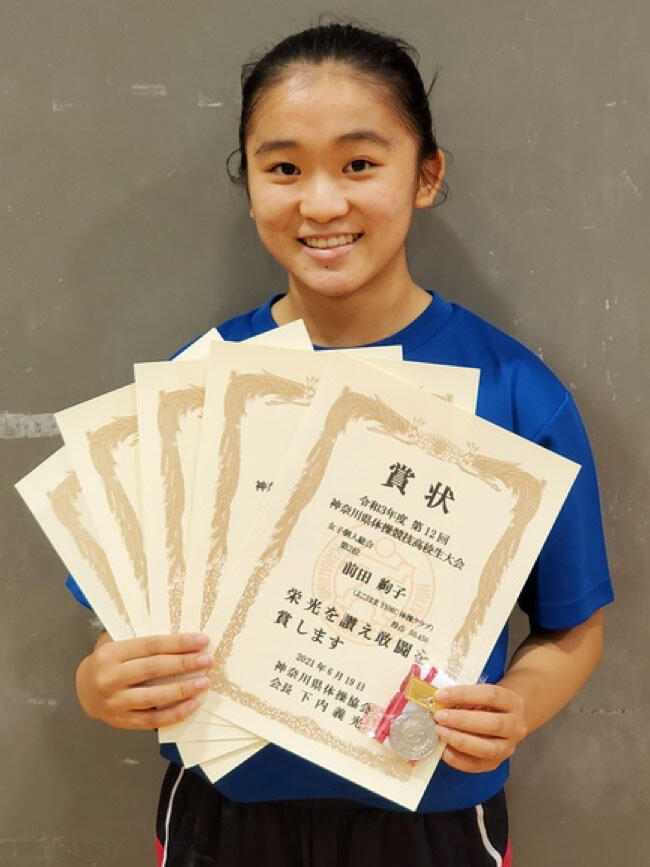 賞状
令和3年度 第12回
神奈川県体操競技高校生大会
女子個人総合
第2位
前田 絢子
(よこはま YSMC 体操クラブ)
得点 50.450
栄光を讃え敢闘を
賞します
2021年6月19日
神奈川県体操協会
会長 下内義光